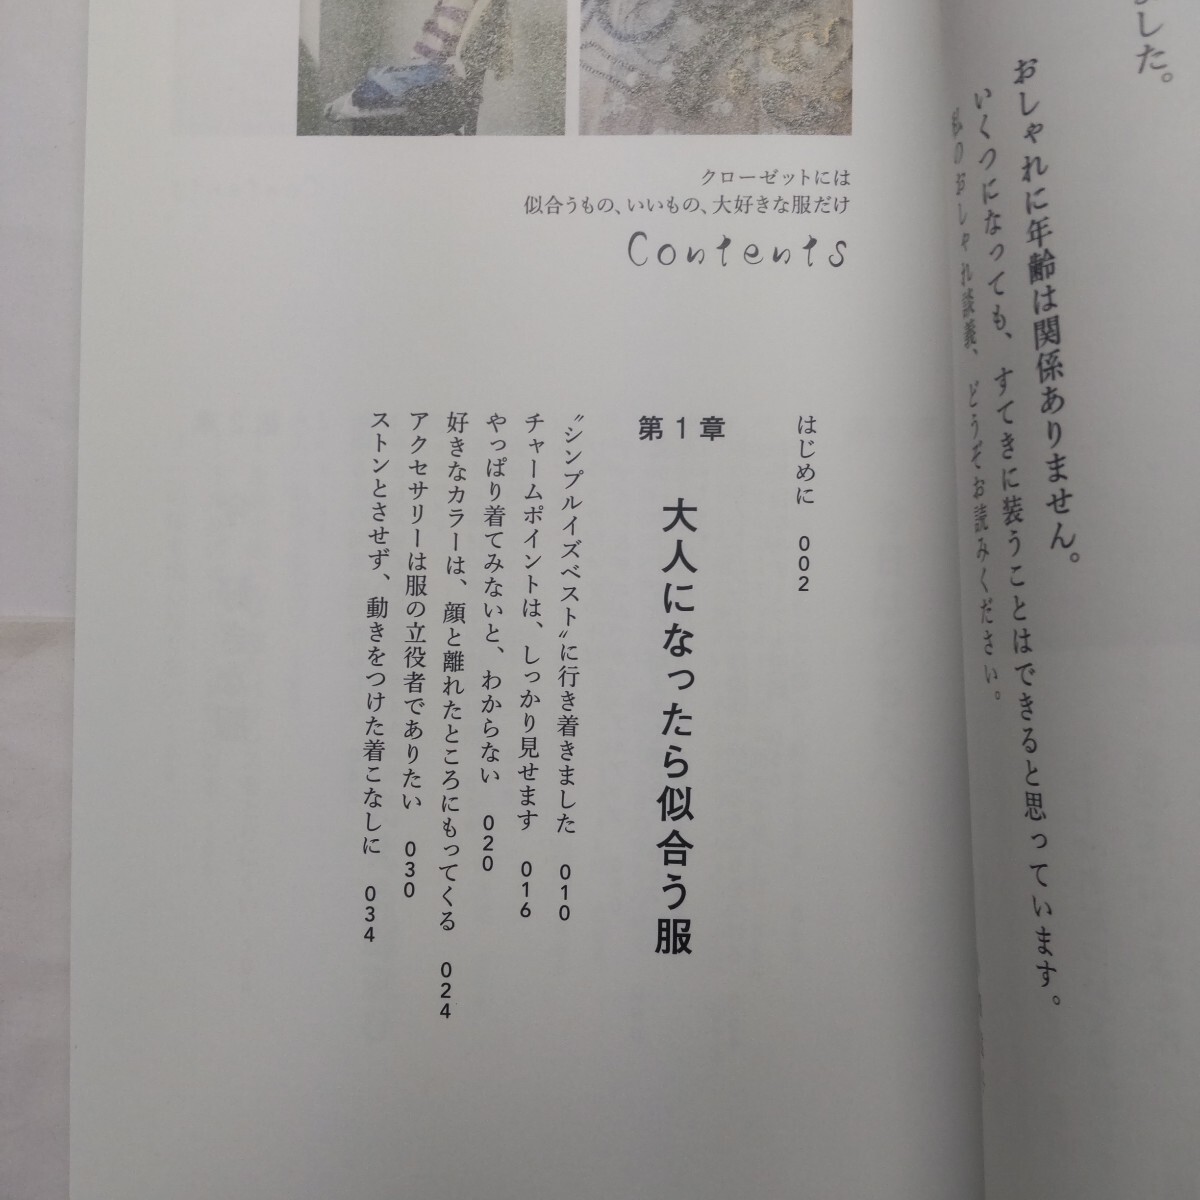 ました。
おしゃれに年齢は関係ありません。
いくつになっても、すてきに装うことはできると思っています。
私のおしゃれ談義、どうぞお読みください。
クローゼットには
似合うもの、いいもの、大好きな服だけ
Contents
はじめに 002
第1章 大人になったら似合う服
〝シンプルイズベスト〟に行き着きました 010
チャームポイントは、しっかり見せます 016
やっぱり着てみないと、わからない 020
好きなカラーは、顔と離れたところにもってくる 024
アクセサリーは服の立役者でありたい 030
ストンとさせず、動きをつけた着こなしに 034